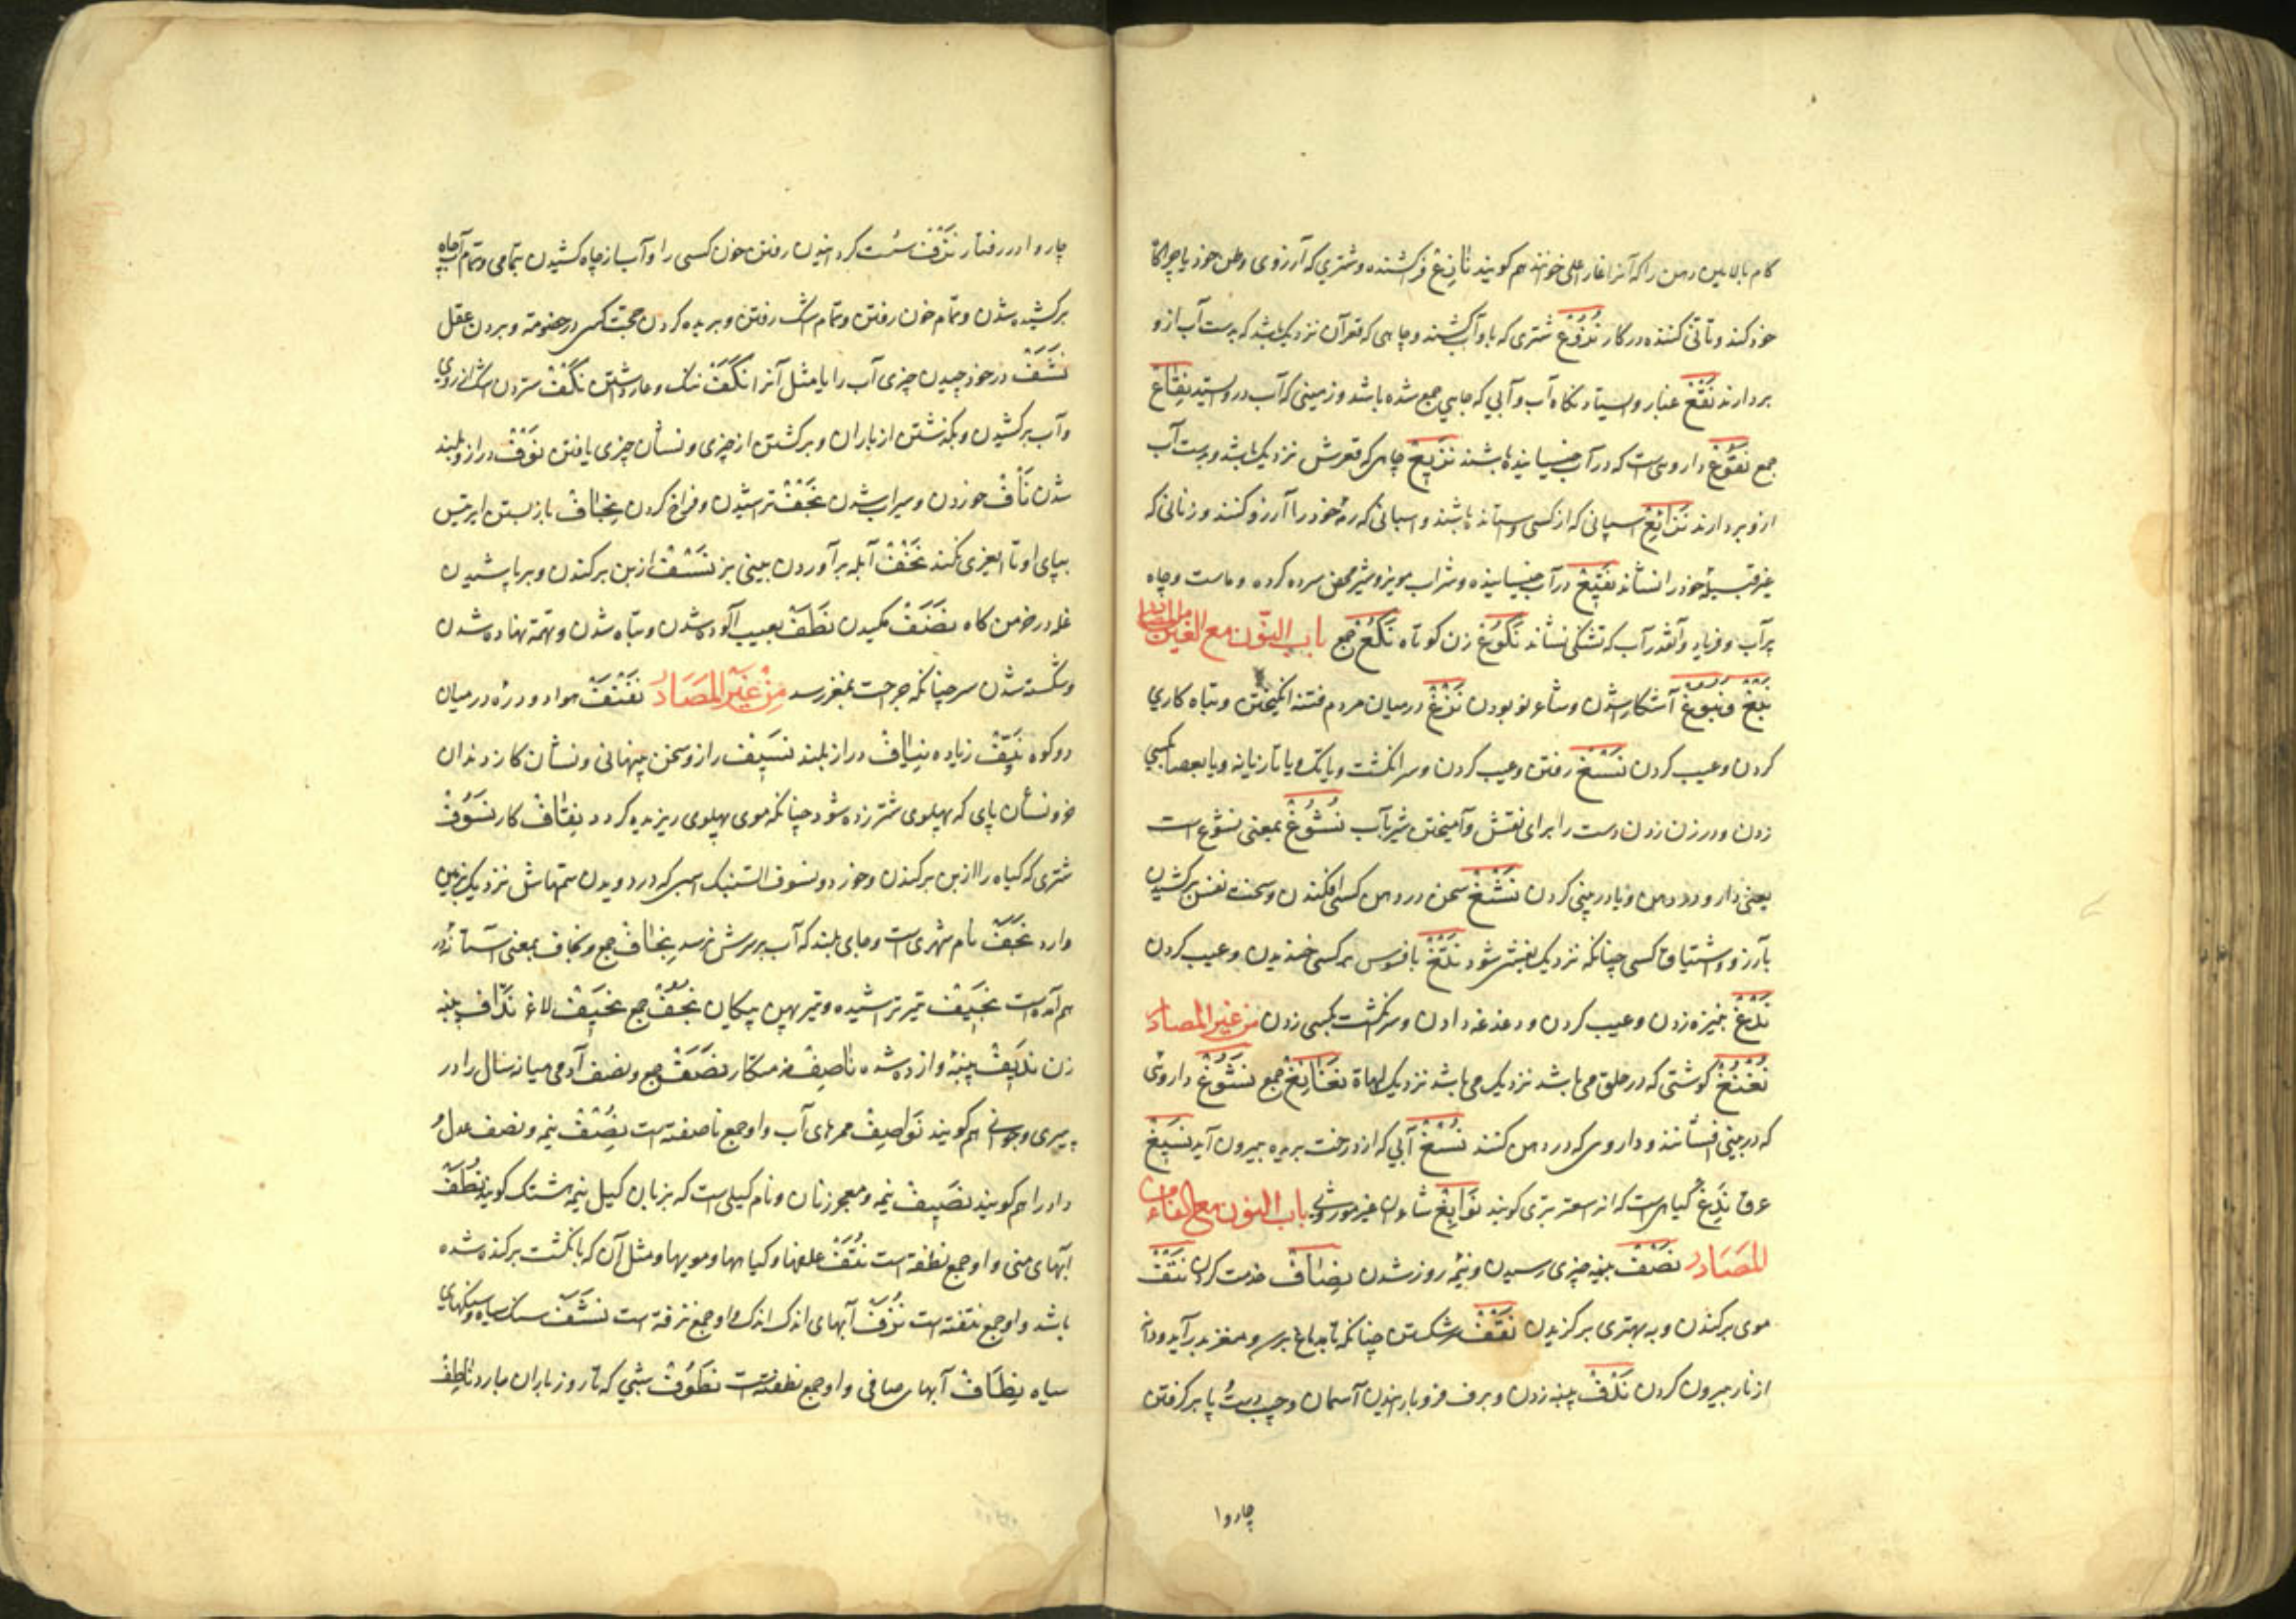 کام بالایین دهن را که آنرا غار اعلی خوانند هم کویند نازِع فرکشنده و شتری که آرزوی وطن خود یا چراگاه
خود کند و تأنی کننده در کار نُزُوع شتری که باو آب کشند و چاهی که قعر آن نزدیک باشد که بدست آب ازو
بردارند نَقع غبار و ایستادنکاه آب و آبی که جایی جمع شده باشد و زمینی که آب درو ایستد نِقاع
جمع نَقُوع داروی است که در آب خیسانیده باشند نَزیع چاهی که قعرش نزدیک باشد و بدست آب
ازو بردارند نَزایع اسپانی که از کسی وستانده باشند و اسپانی که رمهٔ خود را آرزو کنند و زنانی که
غیر قبیلهٔ خود را نشاند نَقیع در آب خیسانیده و شراب مویز و شیر محض سرد کرده و ماست و چاه
پر آب و فریاد و آنقدر آب که تشنکی نشاند نَکُوع زن کوتاه نُکُع جمع باب النون مع الغین من المصادر
نَبغ و نُبوغ آشکار شدن و شاعر نو بودن نَزغ در میان مردم فتنه انکیختن و تباه کاری
کردن و عیب کردن نَسغ رفتن و عیب کردن و سر انکشت و یا بتک و یا تازیانه و یا بعصا بکسی
زدن و درزن زدن دست را برای نقش و آمیختن شیر بآب نُشُوغ بمعنی نشوع است
یعنی دارو در دهن و یا در بینی کردن نَشغ سخن در دهن کسی افکندن و سخت نفس برکشیدن
بآرزو و اشتیاق کسی چنانکه نزدیک بغش شود نَتغ بافسوس بر کسی خندیدن و عیب کردن
نَدغ بنیزه زدن و عیب کردن و دغدغه دادن و سر انکشت بکسی زدن من غیر المصادر
نُغنُغ کوشتی که در حلق می باشد نزدیک می باشد نزدیک لهاة نَغانِغ جمع نَشُوغ داروئی
که در بینی افشانند و داروی که در دهن کنند نُسغ آبی که از درخت بریده بیرون آید نَسیغ
عرق نَدغ کیاهی است که انرا سعتر بری کویند نَوابِغ شاعران غیر موروثی باب النون مع الفاء من
المَصَادر نَصف بنیمه چیزی رسیدن و نیمهٔ روز شدن نِصاف خدمت کردن نَتف
موی برکندن و به بهتری برکزیدن نَقف سر شکستن چنانکه تا بدماغ برسد و مغز بدر آید و دانه
از نار بیرون کردن نَدف پنبه زدن و برف فرو بارانیدن آسمان و چپ دست و پا برکرفتن
چاروا
چاروا در رفتار نَزف سست کردانیدن رفتن خون کسی را و آب از چاه کشیدن بتمامی و تمام آب چاه
برکشیده شدن و تمام خون رفتن و تمام اشک رفتن و بریده کردن حجت کسی در خصومة و بردن عقل
نَشف در خود چیدن چیزی آب را یا مثل آنرا نَکَف ننک و عار داشتن نَکف ستردن اشک از روی
و آب برکشیدن و بگذشتن از باران و برکشتن از چیزی و نشان چیزی یافتن نَوف دراز و بلند
شدن نَأف خوردن و سیراب شدن نَجف تراشیدن و فراخ کردن نِجاف باز بستن ایر تیس
بپای او تا بعیری نکند نَخف آبله برآوردن بینی بز نَسف از بن برکندن و بر پاشیدن
غله در خرمن کاه نَضَف مکیدن نَطَف بعیب آلوده شدن و تباه شدن و بتهمة نهاده شدن
و شکسته شدن سر چنانکه جراحت بمغز رسد مِن غیر المصَادر نَفنَف هوا و دره در میان
دو کوه نَیّف زیاده نِیاف دراز بلند نَسیف راز و سخن پنهانی و نشان کاز دندان
خر و نشان پای که بپهلوی شتر زده شود چنانکه موی پهلوی ریزیده کردد نِقاف کار نَسُوف
شتری که کیاه را از بن برکندن و خورد و نسوف السنبک اسپی که در دویدن سمهاش نزدیک بزمین
دارد نَجَف نام شهری است و جای بلند که آب بر سرش نرسد نِجاف جمع و نجاف بمعنی آستانهٔ در
هم آمده است نَجیف تیر تراشیده و تیر پهن پیکان نُجُف جمع نَحیف لاغر نَدّاف پنبه
زن نَدیف پنبهٔ وازده شده ناصِف خدمتکار نَصَف جمع و نصف آدمی میانه سال را در
پیری و جوانی هم کویند نَواصِف ممرهای آب و او جمع ناصفة است نِصف نیمه و نصف عدل و
داد را هم کویند نَصِیف نیمه و معجر زنان و نام کیلی است که بزبان کیل نیمه هشتک کویند نُطَف
آبهای منی و او جمع نطفه است نُتَف علفها و کیاهها و مویها و مثل آن که بانکشت برکنده شده
باشد و او جمع نتفه است نُزَف آبهای اندک اندک و او جمع نزفه است نَشَف سنک سیاه و سنکهای
سیاه نِطاف آبهای صافی و او جمع نطفه است نَطُوف شبی که تا روز باران بارد ناطِف